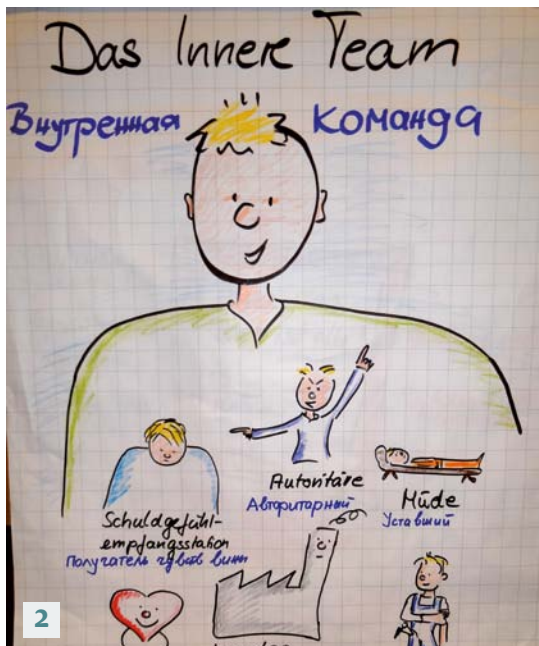 Das Innere Team
Внутренная Команда
Autoritäre
Авторитарный
Müde
Уставший
Schuldgefühl-
empfangsstation
Получатель чувств вины
2